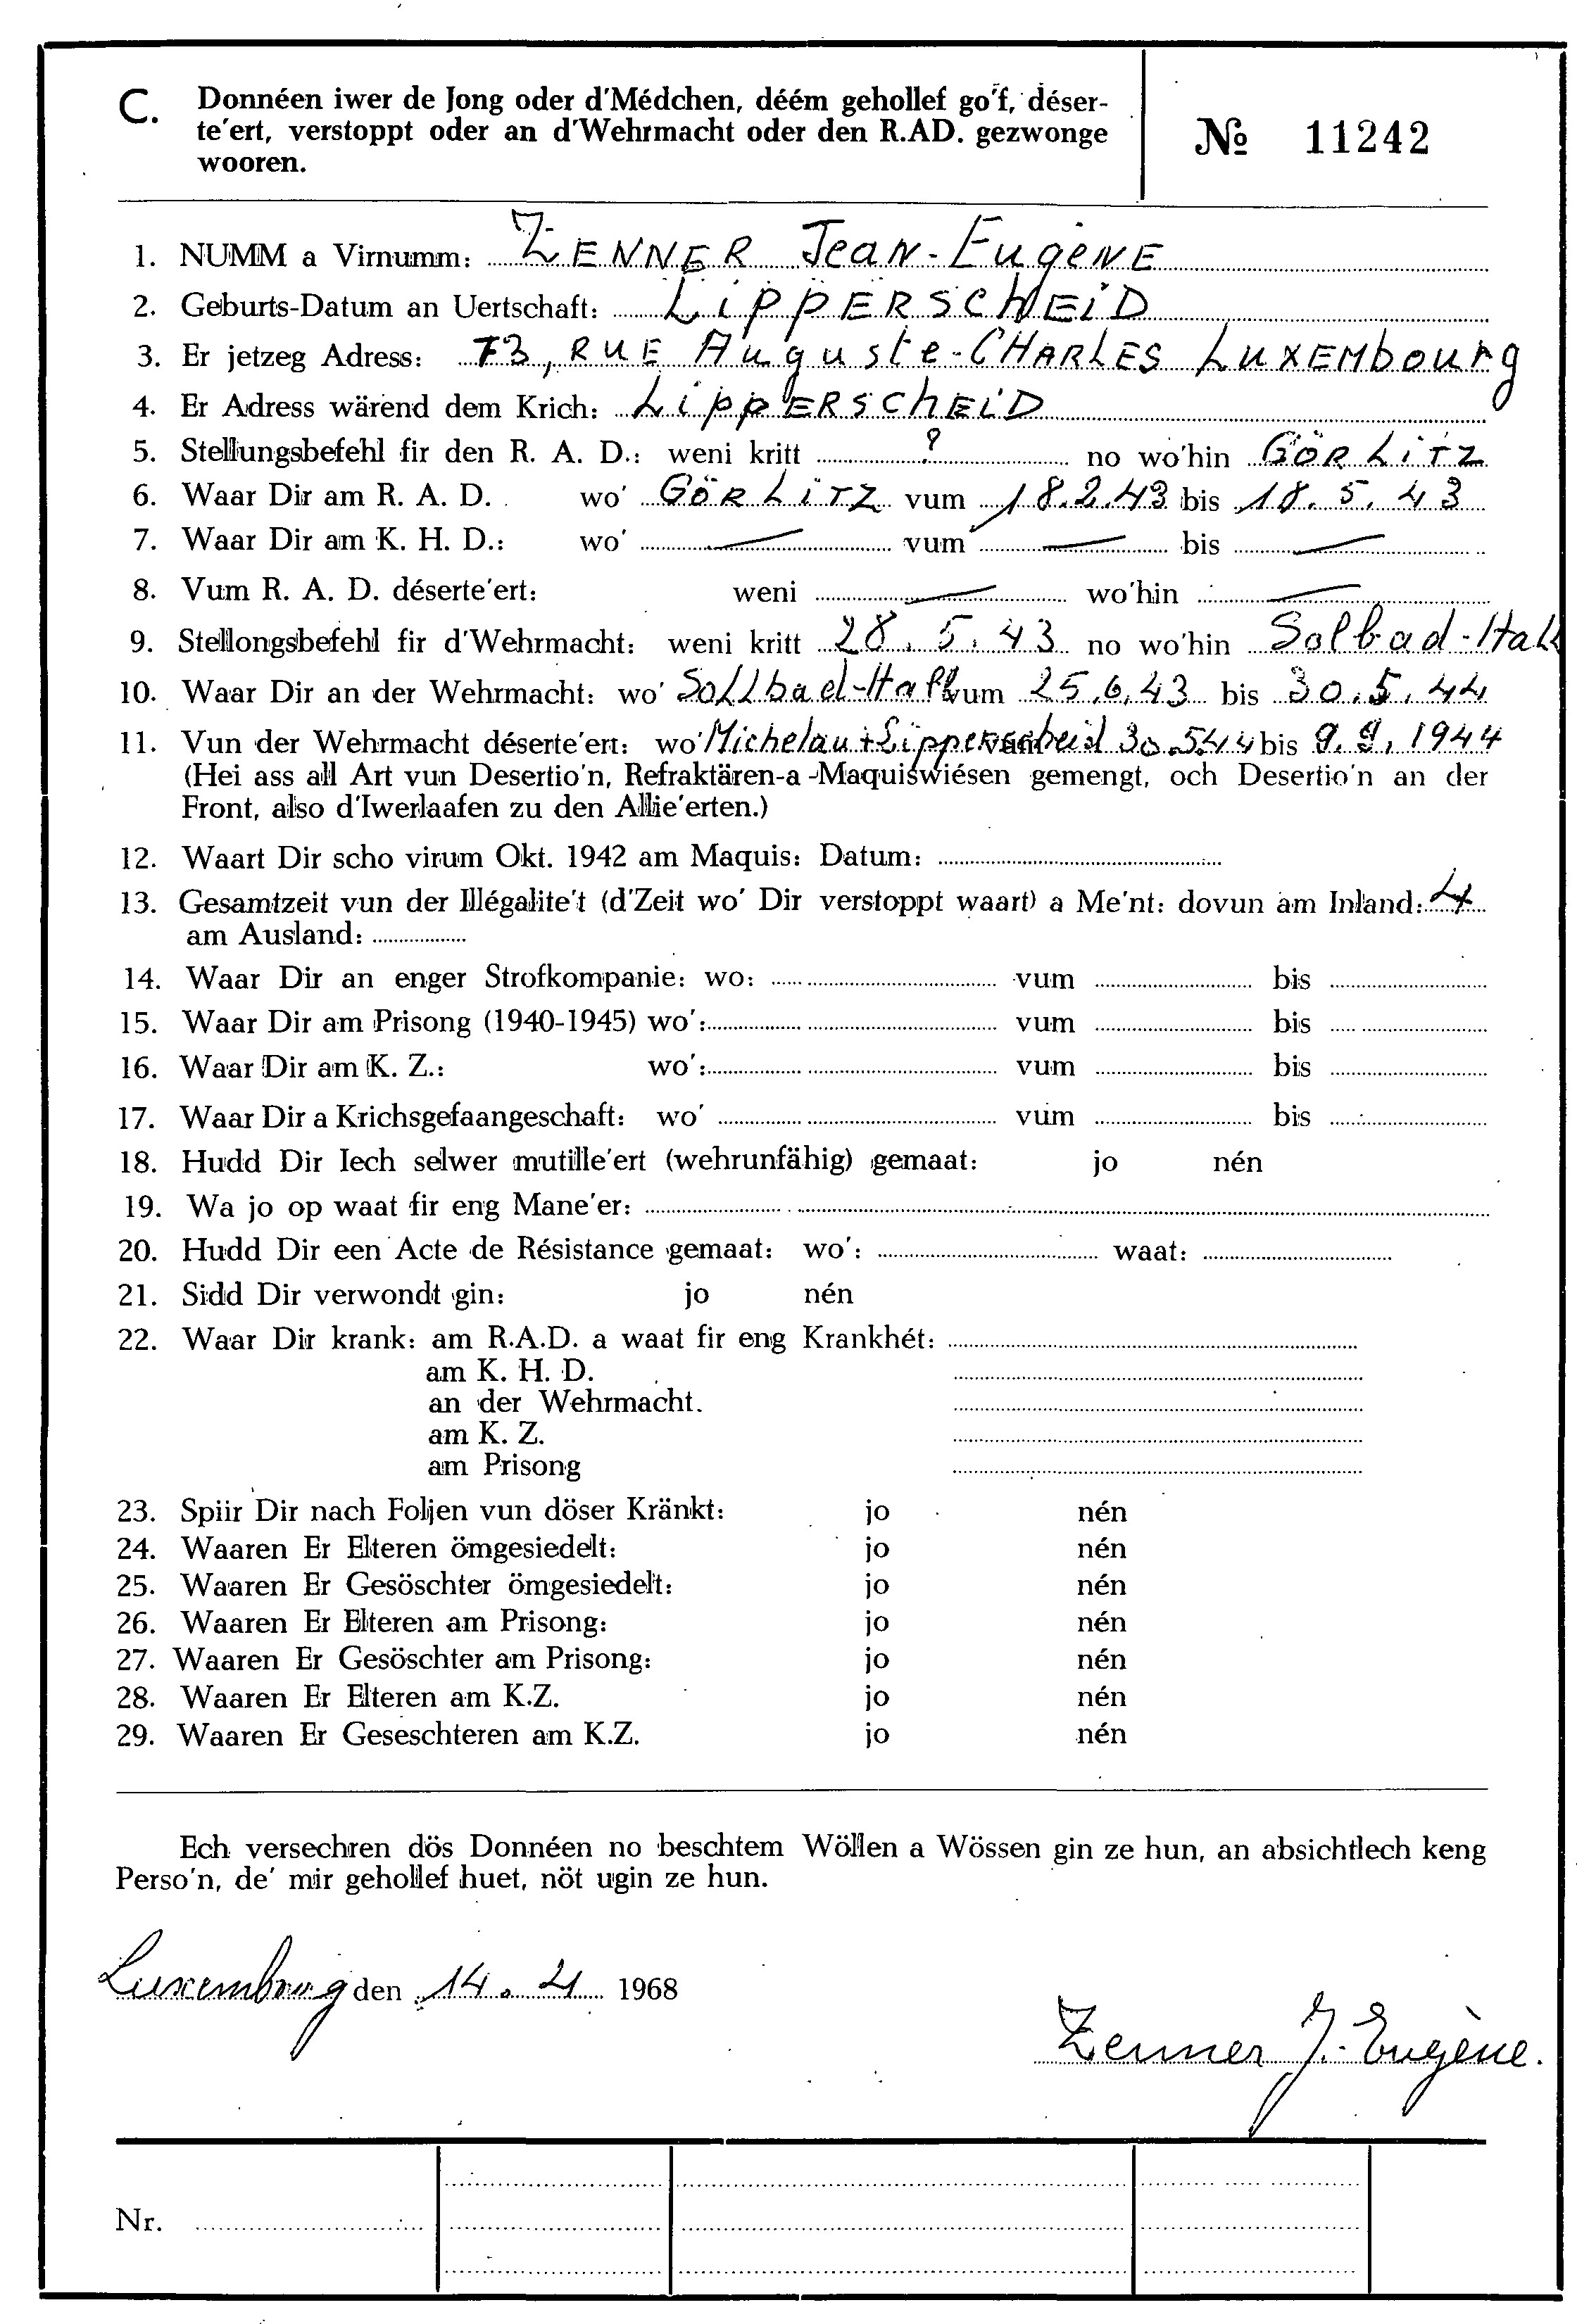 C. Donnéen iwer de Jong oder d'Médchen, déém gehollef go'f, déser-
te'ert, verstoppt oder an d'Wehrmacht oder den R.AD. gezwonge
wooren.
№ 11242
1. NUMM a Virnumm: ZENNER Jean-Eugène
2. Geburts-Datum an Uertschaft: LIPPERSCHEID
3. Er jetzeg Adress: 73, RUE Auguste-CHARLES LUXEMbourg
4. Er Adress wärend dem Krich: LippERSchEiD
5. Stellungsbefehl fir den R. A. D.: weni kritt ? no wo'hin GÖRLiTZ
6. Waar Dir am R. A. D. wo' GÖRLiTZ vum 18.2.43 bis 18.5.43
7. Waar Dir am K. H. D.: wo' — vum — bis —
8. Vum R. A. D. déserte'ert: weni — wo'hin —
9. Stellongsbefehl fir d'Wehrmacht: weni kritt 28.5.43 no wo'hin Solbad-Hall
10. Waar Dir an der Wehrmacht: wo' Sollbad-Hall vum 25.6.43 bis 30.5.44
11. Vun der Wehrmacht déserte'ert: wo' Michelau + Lipperscheid vum 30.5.44 bis 9.9.1944
(Hei ass all Art vun Desertio'n, Refraktären-a -Maquiswiésen gemengt, och Desertio'n an der
Front, also d'Iwerlaafen zu den Allie'erten.)
12. Waart Dir scho virum Okt. 1942 am Maquis: Datum:
13. Gesamtzeit vun der Illégalite't (d'Zeit wo' Dir verstoppt waart) a Me'nt: dovun am Inland: 4
am Ausland:
14. Waar Dir an enger Strofkompanie: wo: vum bis
15. Waar Dir am Prisong (1940-1945) wo': vum bis
16. Waar Dir am K. Z.: wo': vum bis
17. Waar Dir a Krichsgefaangeschaft: wo' vum bis
18. Hudd Dir Iech selwer mutille'ert (wehrunfähig) gemaat: jo nén
19. Wa jo op waat fir eng Mane'er:
20. Hudd Dir een Acte de Résistance gemaat: wo': waat:
21. Sidd Dir verwondt gin: jo nén
22. Waar Dir krank: am R.A.D. a waat fir eng Krankhét:
am K. H. D.
an der Wehrmacht.
am K. Z.
am Prisong
23. Spiir Dir nach Foljen vun döser Kränkt: jo nén
24. Waaren Er Elteren ömgesiedelt: jo nén
25. Waaren Er Gesöschter ömgesiedelt: jo nén
26. Waaren Er Elteren am Prisong: jo nén
27. Waaren Er Gesöschter am Prisong: jo nén
28. Waaren Er Elteren am K.Z. jo nén
29. Waaren Er Geseschteren am K.Z. jo nén
Ech versechren dös Donnéen no beschtem Wöllen a Wössen gin ze hun, an absichtlech keng
Perso'n, de' mir gehollef huet, nöt ugin ze hun.
Luxembourg den 14. 4 1968
Zenner J.-Eugène.
Nr.